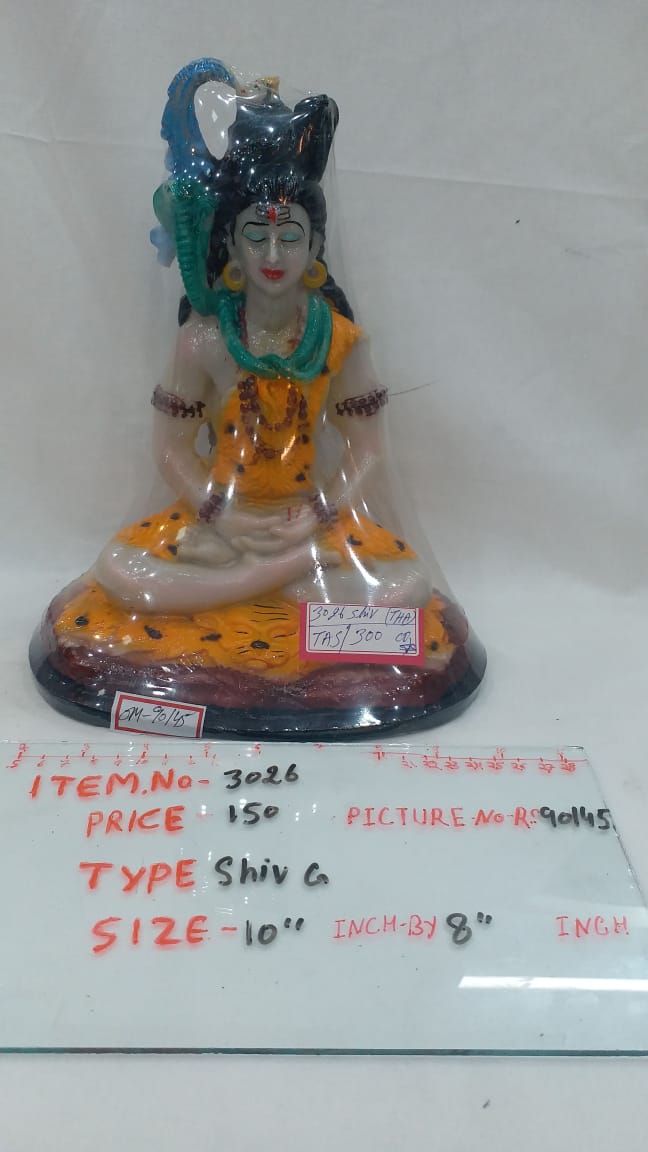 3026 Shiv (THA)
TAS/ 300
OM-90/45
ITEM.No- 3026
PRICE - 150 PICTURE-No-R: 90/45
TYPE Shiv G
SIZE - 10" INCH-BY 8" INCH